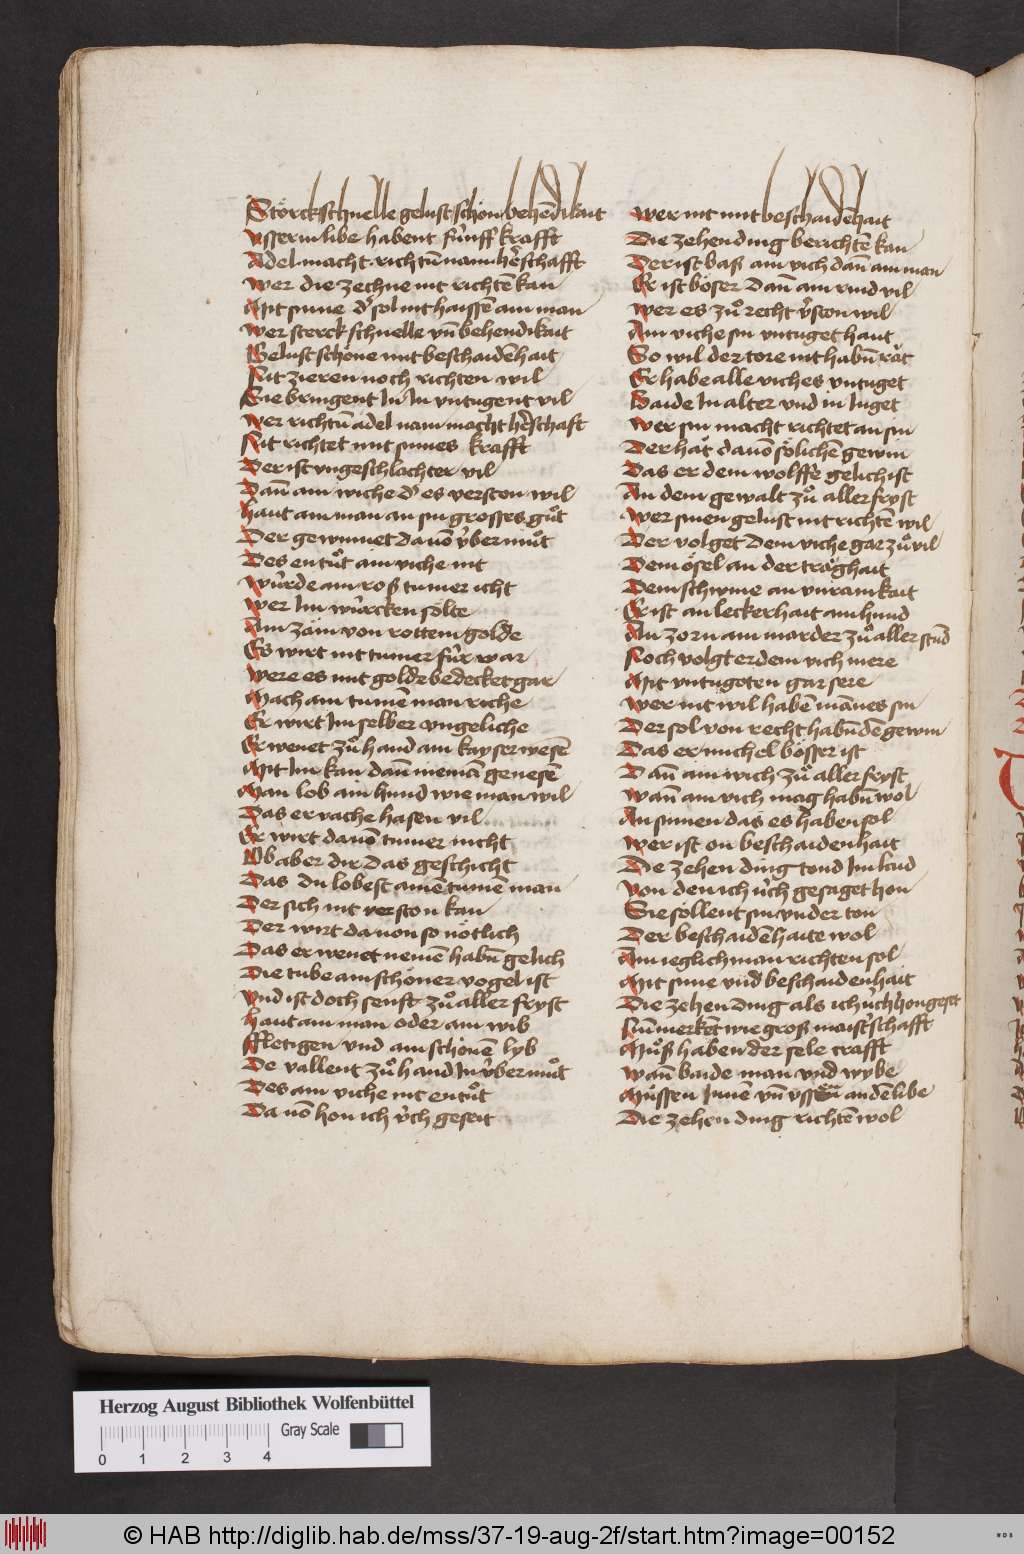 Störck schnelle gelust schön behendikait
Vsserm libe habent fúnff krafft
Adel macht richtū nam hėschafft
Wer die zechne nit richtē kan
Mit sinne d' sol nit haissē ain man
Wer sterck schnelle vn̄ behendikait
Gelust schöne mit beschaidēhait
Nit zieren noch richten wil
Sie bringent In In vntugent vil
Wer richtū adel nam macht hėschaft
Nit richtet mit sinnes krafft
Der ist vngeschlachter vil
Dan̄ ain viche d' es verston wil
Haut ain man an sin grosses gůt
Der gewinnet da uō v́bermůt
Des entůt ain viche nit
Wúrde ain roß tumer icht
Wer Im wúrcken sölte
Ain zäm von rottem golde
Es wirt nit tumer fúr war
Were es mit golde bedecket gar
Mach ain tumē man riche
Er wirt Im selber vngeliche
Er wenet zů hand ain kayser wesē
Mit Im kan dan̄ niemā genesē
Man lob ain hund wie man wil
Das er vache hasen vil
Er wirt dauō tumer nicht
Ob aber dir das geschicht
Das du lobest ainē tumē man
Der sich nit verston kan
Der wirt da uon so nötlich
Das er wenet niemē habn̄ gelich
Die tube ain schöner vogel ist
Vnd ist doch senft zů aller fryst
Haut ain man oder ain wib
Fletigen vnd ain schönē lyb
De vallent zů hand In v́bermůt
Des ain viche nit entůt
Da uō hon ich v́ch geseit
Wer nit mit beschaidēhait
Die zehen ding berichtē kan
Der ist baß ain vich dan̄ ain man
Er ist böser dan̄ ain rind vil
Wer es zů recht v'ston wil
Ain viche sin vntuget haut
So wil der tore nit habn̄ rät
Er habe alle viches vntuget
Baide In alter vnd in Iuget
Wer sin macht richtet an sin
Der hät dauō sölichē gewin
Das er dem wolffe gelich ist
An dem gewalt zů aller fryst
Wer sinen gelust nit richtē wil
Der volget dem viche gar zů vil
Dem ösel an der träghait
Dem schwine an vnrainkait
Er ist an leckerhait ain hund
An zorn ain marder zů aller stūd
Noch volgt er dem vich mere
Mit vntugeten gar sere
Wer nit wil habē mānes sin
Der sol von recht habn̄ dē gewin
Das er michel bösser ist
Dan̄ ain vich zů aller fryst
Wan̄ ain vich mag habn̄ wol
An sinnen das es haben sol
Wer ist on beschaidenhait
Die zehen ding tond Im laid
Von den ich v́ch gesaget hon
Sie söllent sin vnder ton
Der beschaidēhaite wol
Ain ieglich man richten sol
Mit sinne vnd beschaidenhait
Die zehen ding als ich v́ch hon geset
Nun̄ merkēt wie groß maist'schafft
Můß haben der sele crafft
Wan̄ baide man vnd wybe
Můssen Innē vn̄ vssen an dē libe
Die zehen ding richtē wol
Herzog August Bibliothek Wolfenbüttel
Gray Scale
0 1 2 3 4
© HAB http://diglib.hab.de/mss/37-19-aug-2f/start.htm?image=00152